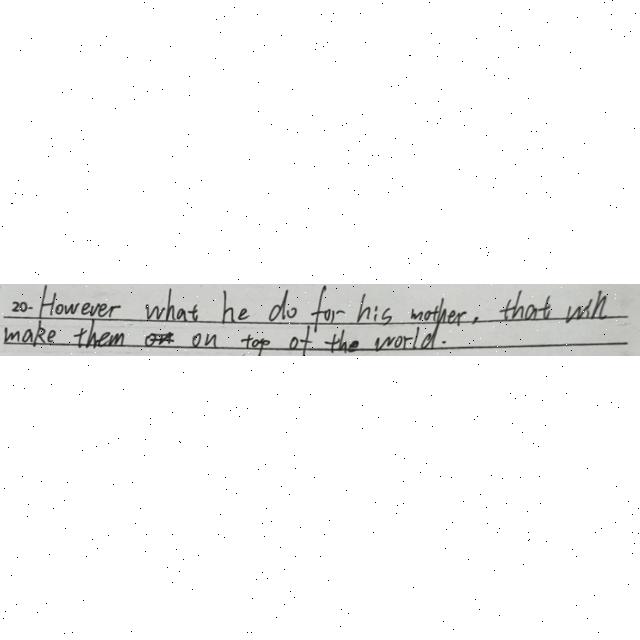 20. However what he do for his mother, that will
make them on top of the world.